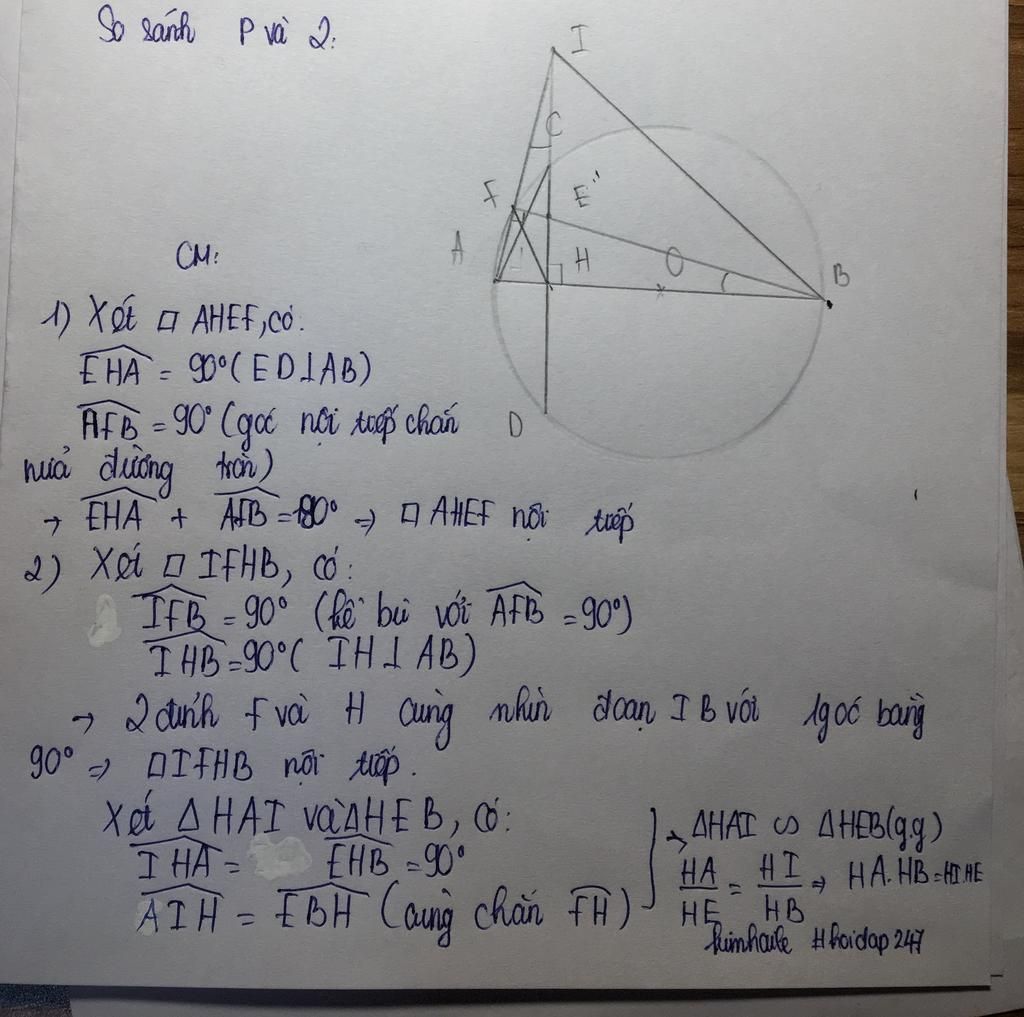 So sánh P và 2:
I
C
F
E
A
H
O
B
D
CM:
1) Xét □ AHEF, có:
EHA = 90° (ED⊥AB)
AFB = 90° (góc nội tiếp chắn
nửa đường tròn)
→ EHA + AFB = 180° => □ AHEF nội tiếp
2) Xét □ IFHB, có:
IFB = 90° (kề bù với AFB = 90°)
IHB = 90° ( IH⊥AB)
→ 2 đỉnh F và H cùng nhìn đoạn IB với 1 góc bằng
90° => □IFHB nội tiếp.
Xét △HAI và △HEB, có:
IHA = EHB = 90°
AIH = EBH (cùng chắn FH)
→ △HAI ∽ △HEB (g.g)
HA/HE = HI/HB => HA.HB = HI.HE
kimhaule #hoidap247